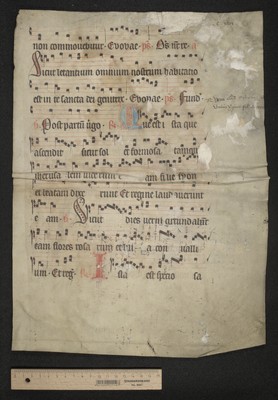 non commovebitur Evovae ps
Sicut letantium omnium nostrum habitatio
est in te sancta dei genitrix Evovae ps fund
Post partu v̄go Que est ista que
ascendit sicut sol et formosa tamqʒ
iherusalem viderunt eam filie syon
et beatam dixerunt Et regine laudaverunt
eam Sicut dies verni circundabāt
eam flores rosarum et lilia convalli
um Et reg Ista est specio sa